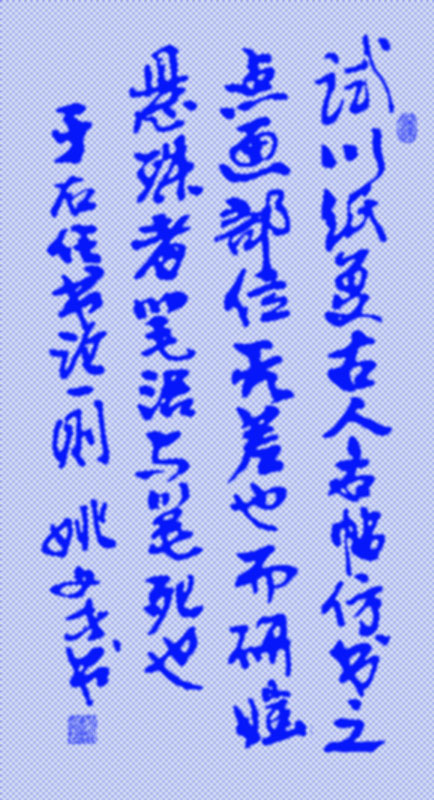 试以纸蒙古人古帖仿书之
点画部位无差也而研媸
悬殊者笔活与笔死也
于右任书论一则 姚文书